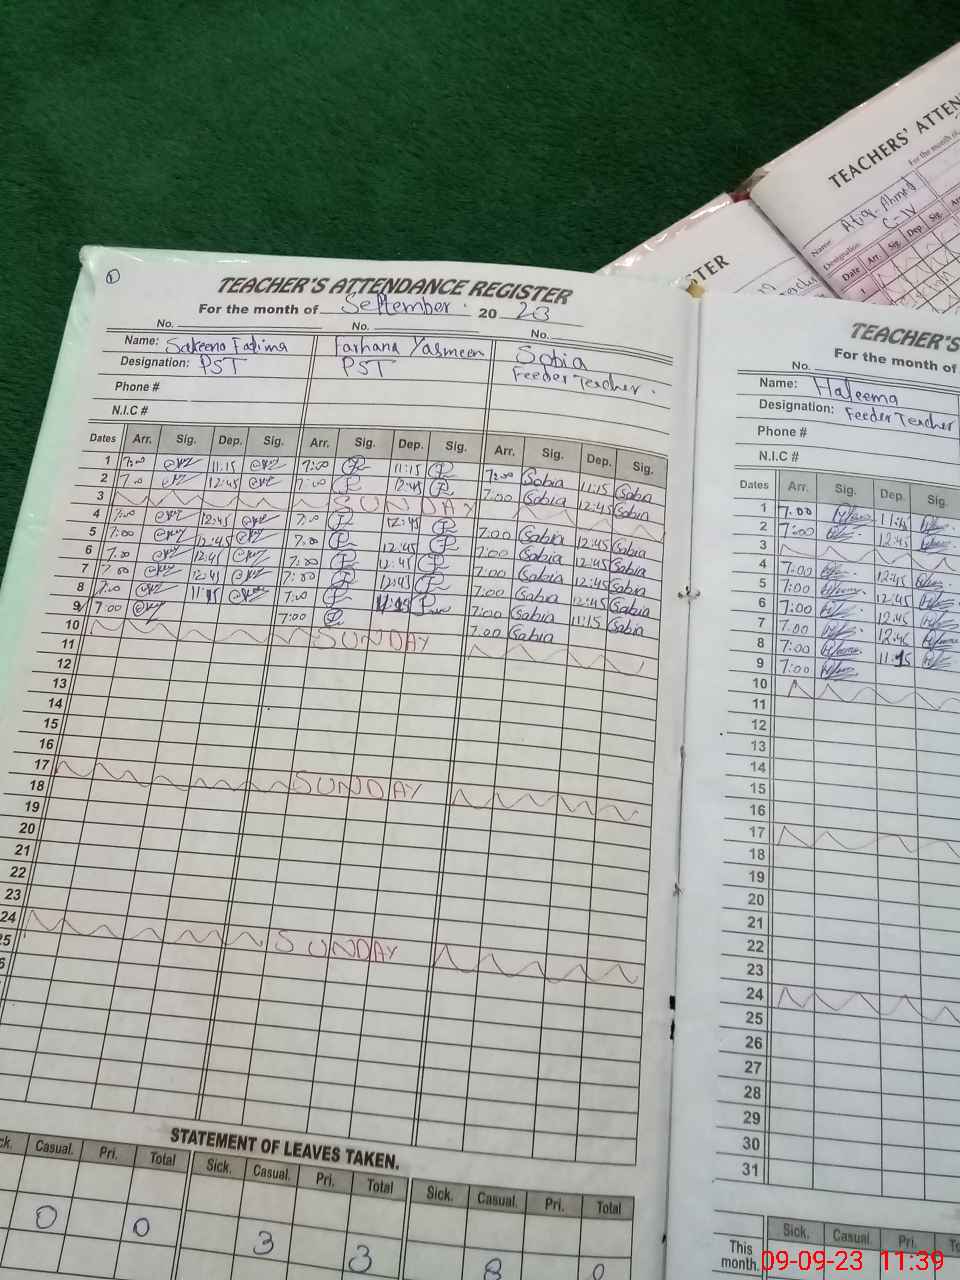 TEACHER'S ATTENDANCE REGISTER
For the month of September. 2023
No. No. No.
Name: Sakeena Fatima Farhana Yasmeen Sobia
Designation: PST PST Feeder Teacher.
Phone #
N.I.C #
Dates Arr. Sig. Dep. Sig. Arr. Sig. Dep. Sig. Arr. Sig. Dep. Sig.
1 7:00 11:15 7:00 11:15 7:00 Sobia 11:15 Sobia
2 7:00 12:45 7:00 12:45 7:00 Sobia 12:45 Sobia
3 SUNDAY
4 7:00 12:45 7:00 12:45 7:00 Sobia 12:45 Sobia
5 7:00 12:45 7:00 12:45 7:00 Sobia 12:45 Sobia
6 7:00 12:45 7:00 12:45 7:00 Sobia 12:45 Sobia
7 7:00 12:45 7:00 12:45 7:00 Sobia 12:45 Sobia
8 7:00 11:15 7:00 11:15 7:00 Sobia 11:15 Sobia
9 7:00 7:00 7:00 Sobia
10 SUNDAY
11
12
13
14
15
16
17 SUNDAY
18
19
20
21
22
23
24 SUNDAY
STATEMENT OF LEAVES TAKEN.
Casual. Pri. Total Sick. Casual. Pri. Total Sick. Casual. Pri. Total
0 0 3 3 8
TEACHER'S
For the month of
No.
Name: Haleema
Designation: Feeder Teacher
Phone #
N.I.C #
Dates Arr. Sig. Dep. Sig.
1 7:00 11:15
2 7:00 12:45
3
4 7:00 12:45
5 7:00 12:45
6 7:00 12:45
7 7:00 12:45
8 7:00 11:15
9 7:00
10
11
12
13
14
15
16
17
18
19
20
21
22
23
24
25
26
27
28
29
30
31
Sick. Casual. Pri.
This month.
TEACHERS' ATTEN
For the month of
Name Atiq Ahmed
Designation C-IV
Date Arr. Sig. Dep. Sig.
1
STER
09-09-23 11:39